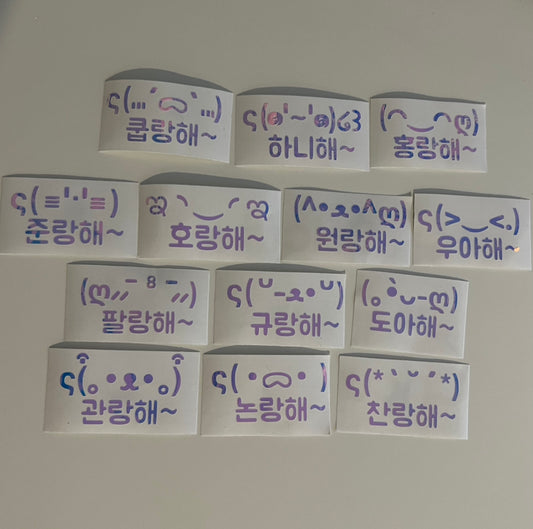 ς(…´ᯅ`…)
쿱랑해~
ς(๑╹~╹๑)໒꒱
하니해~
(◠‿◠ღ)
홍랑해~
ς(≡╹.╹≡)
준랑해~
ઘ ˋ‿ˊ ઘ
호랑해~
(^•ﻌ•^ღ)
원랑해~
ς(>‿<.)
우아해~
(ღ〃¯ 8 ¯〃)
팔랑해~
ς(ᵕ-ﻌ•ᵕ)
규랑해~
(｡•̀ᴗ-ღ)
도아해~
ς(ꉺ｡•ﻌ•｡ꉺ)
관랑해~
ς(•ᯅ•)
논랑해~
ς(*ˋ ᵕ ˊ*)
찬랑해~